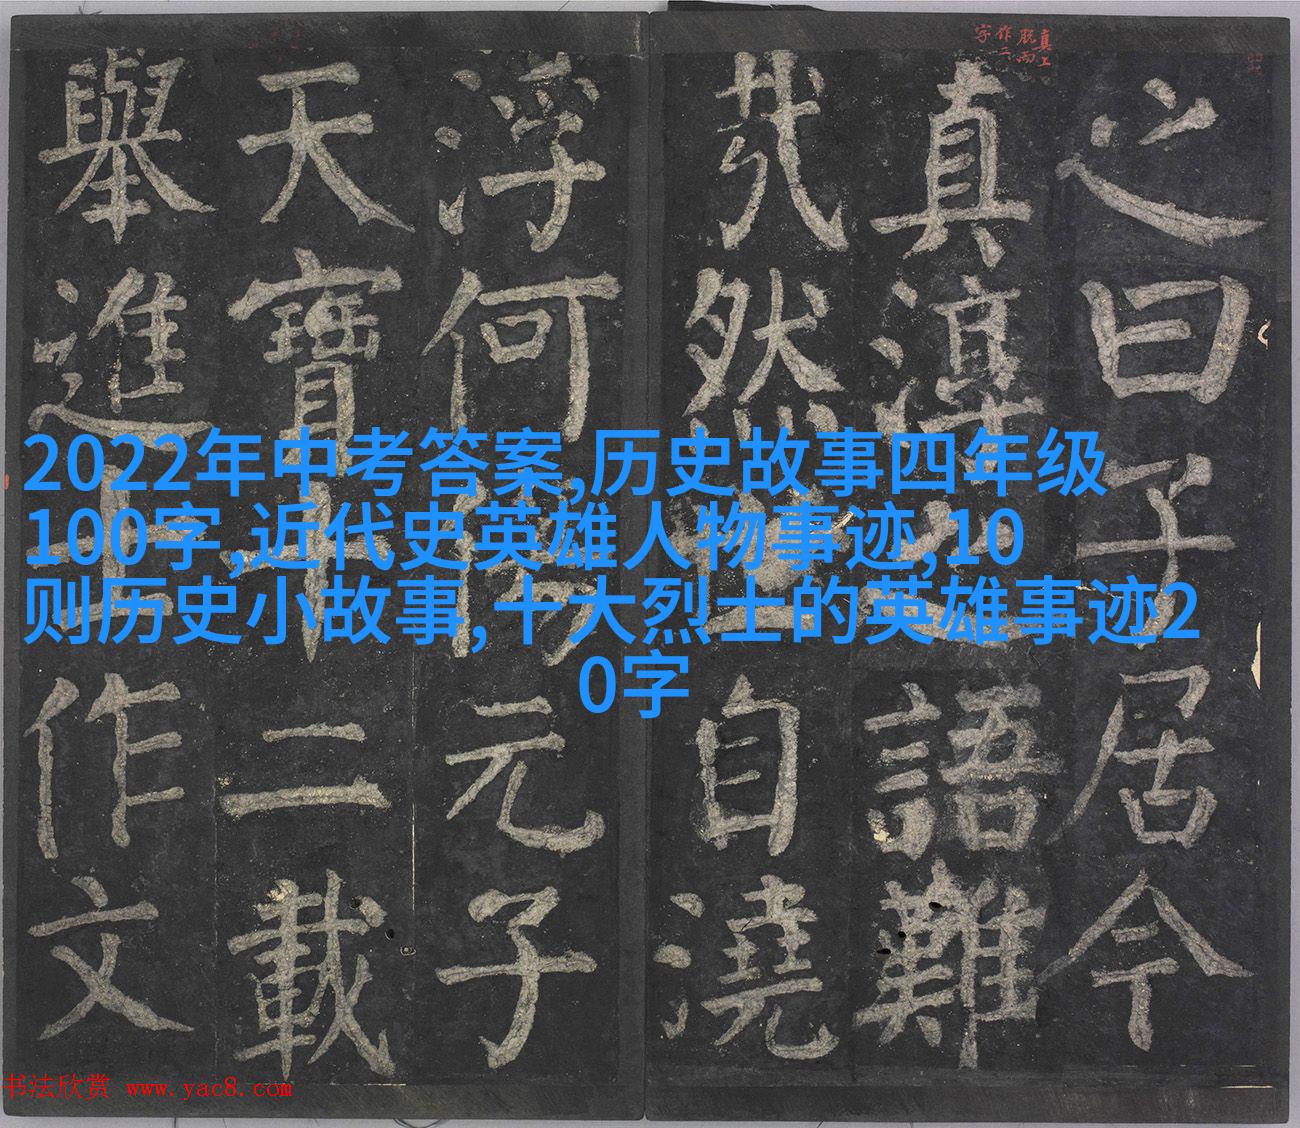 2022年中考答案,历史故事四年级
100字,近代史英雄人物事迹,10
则历史小故事, 十大烈士的英雄事迹2
0字
真上
脫而
作二
字
之曰子居今
真淳之語難
哉然世自澆
浮何傷元子
天寶十二載
舉進士作文
书法欣赏 www.yac8.com